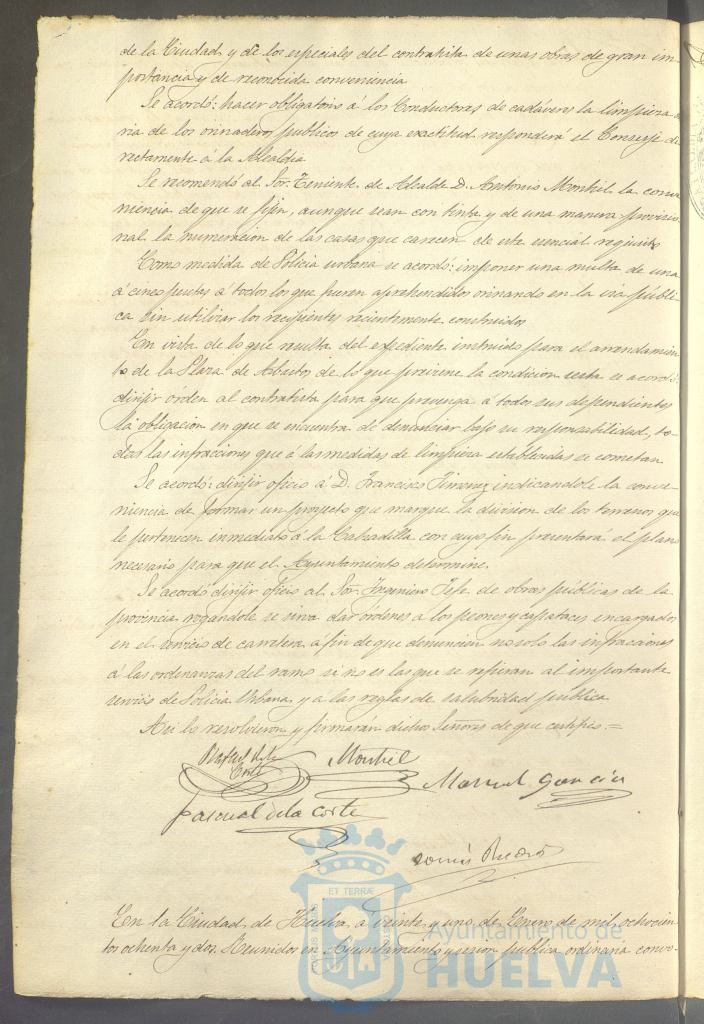 de la Ciudad y de los especiales del contratista de unas obras de gran im-
portancia y de reconocida conveniencia
Se acordó: hacer obligatorio á los Conductores de cadáveres la limpieza
ria de los orinaderos públicos de cuya exactitud responderá el Conserje di-
rectamente á la Alcaldia
Se recomendó al Sor. Teniente de Alcalde D. Antonio Montiel la conve-
niencia de que se fijen, aunque sean con tinta y de una manera provisio-
nal la numeracion de las casas que carecen de este esencial requisito
Como medida de Policia urbana se acordó: imponer una multa de una
á cinco pesetas á todos los que fueren aprehendidos orinando en la via públi-
ca sin utilizar los recipientes recientemente construidos
En vista de lo que resulta del expediente instruido para el arrendamien-
to de la Plaza de Abastos, de lo que previene la condicion sesta se acordó:
dirijir órden al contratista para que prevenga á todos sus dependientes
la obligacion en que se encuentra de denunciar bajo su responsabilidad, to-
das las infracciones que á las medidas de limpieza establecidas se cometan
Se acordó: dirijir oficio á D. Francisco Jimenez indicandole la conve-
niencia de formar un proyecto que marque la division de los terrenos que
le pertenecen inmediato á la Calzadilla con cuyo fin presentará el plano
necesario para que el Ayuntamiento determine.
Se acordó dirijir oficio al Sor. Ingeniero Jefe de obras públicas de la
provincia rogandole se sirva dar órdenes a los peones y capataces encargados
en el servicio de carretera á fin de que denuncien no solo las infracciones
á las ordenanzas del ramo si no es las que se refieran al importante
servicio de Policia Urbana y a las reglas de salubridad pública
Asi lo resolvieron y firmarán dichos Señores de que certifico.=
Rafael de la
Corte
Montiel
Manuel Garcia
Pascual de la Corte
En la Ciudad de Huelva á veinte y uno de Enero de mil ochocien-
tos ochenta y dos. Reunidos en Ayuntamiento y sesion publica ordinaria convo-
ET TERRÆ
Ayuntamiento de
HUELVA